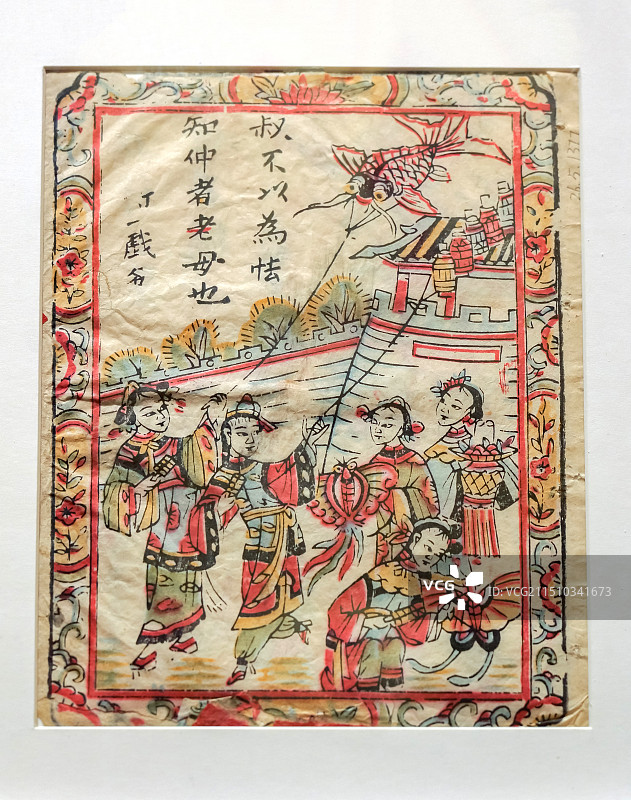 叔不以為怯
知仲者老母也
VCG
ID:VCG211510341673